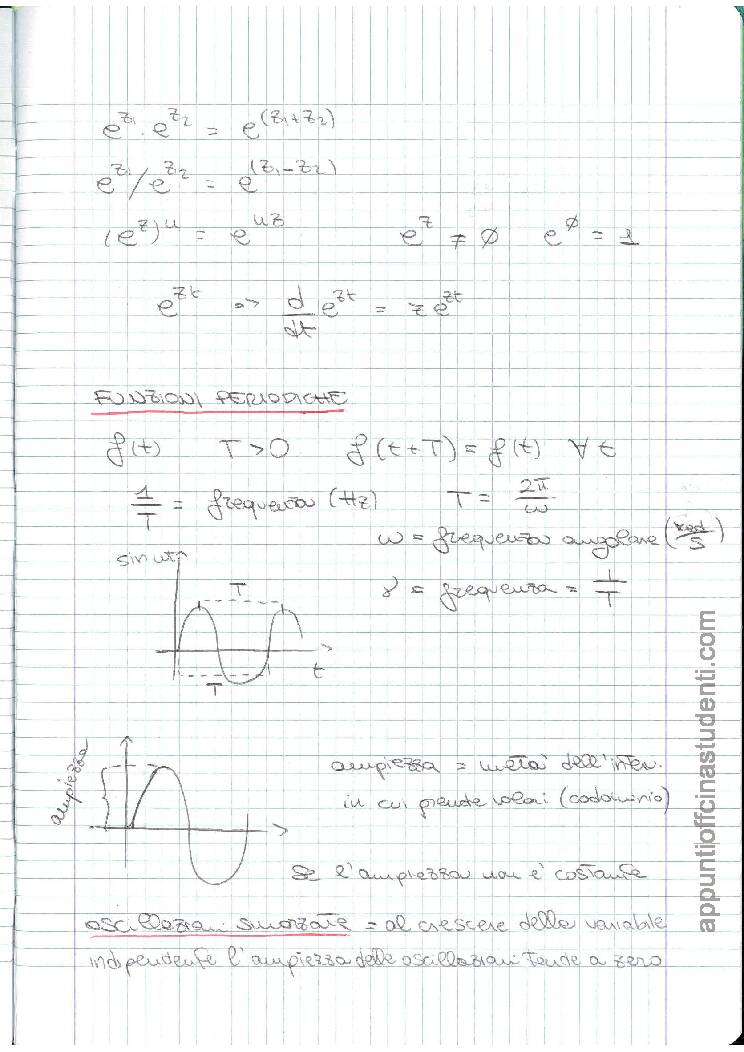 e^z₁ · e^z₂ = e^(z₁+z₂)
e^z₁ / e^z₂ = e^(z₁-z₂)
(e^z)^u = e^uz   e^z ≠ ∅   e^∅ = 1
e^zt => d/dt e^zt = z e^zt
FUNZIONI PERIODICHE
f(t)   T>0   f(t+T) = f(t) ∀ t
1/T = frequenza (Hz)   T = 2π/ω
ω = frequenza angolare (rad/s)
sin ωt
γ = frequenza = 1/T
T
t
T
ampiezza
ampiezza = metà dell'inter.
in cui prende valori (codominio)
Se l'ampiezza non è costante
oscillazioni smorzate = al crescere della variabile
indipendente l'ampiezza delle oscillazioni tende a zero
appuntioffcinastudenti.com